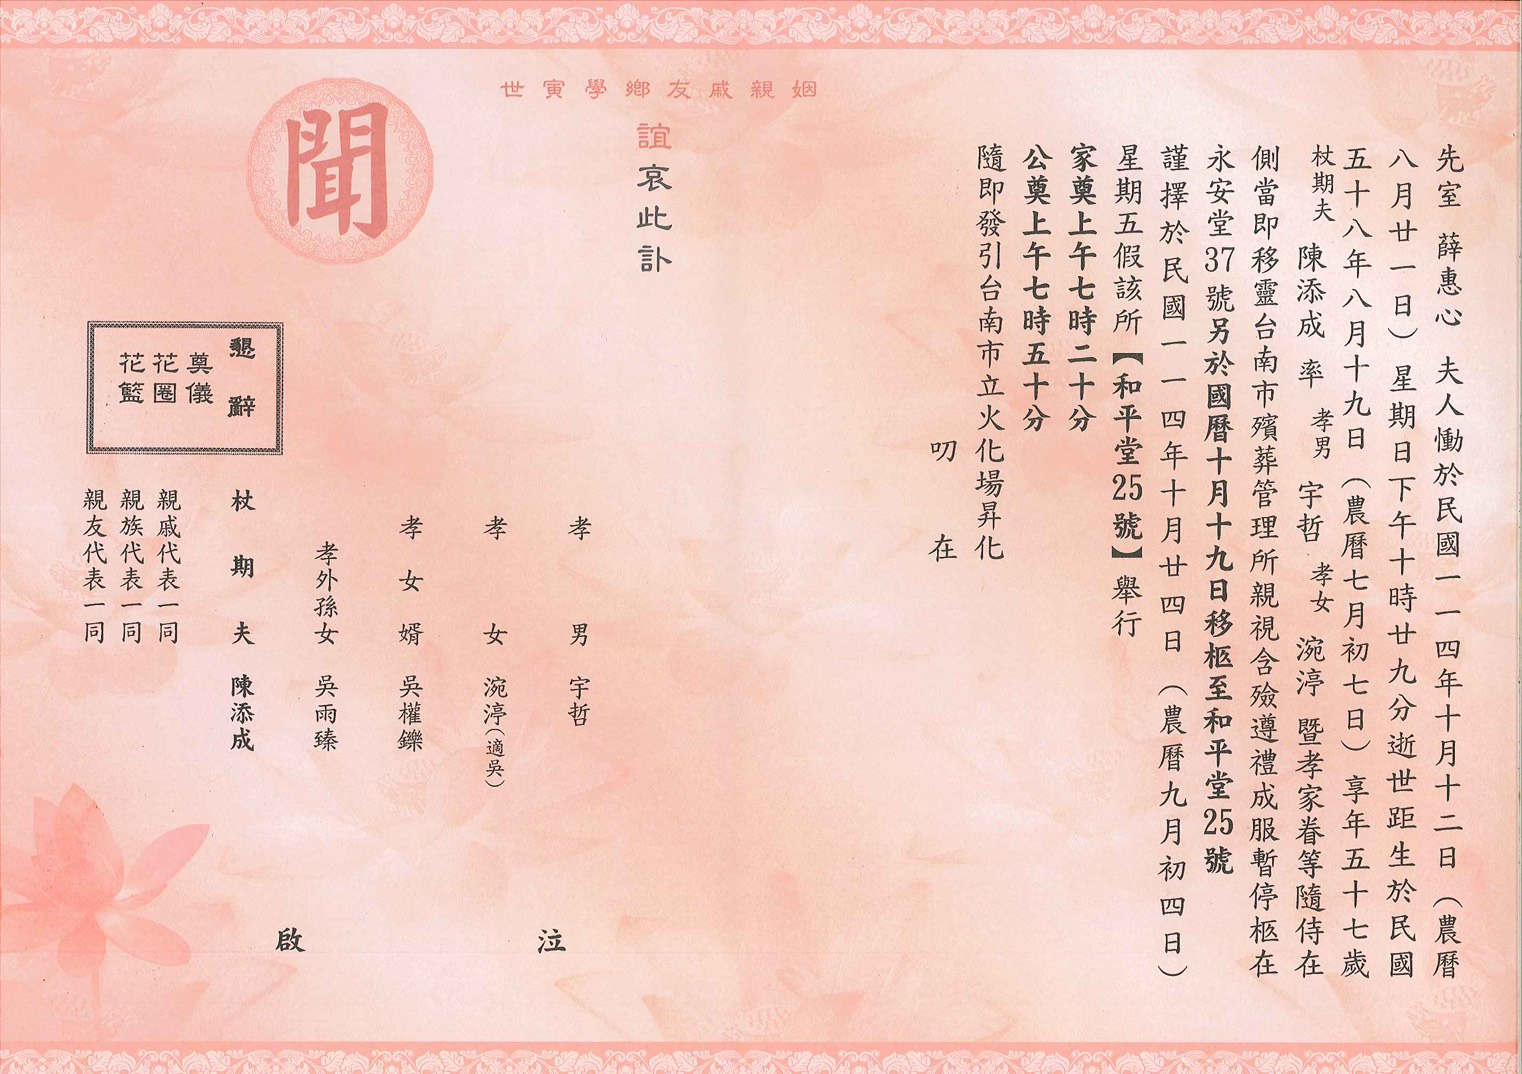 先室 薛惠心 夫人慟於民國一一四年十月十二日（農曆
八月廿一日）星期日下午十時廿九分逝世距生於民國
五十八年八月十九日（農曆七月初七日）享年五十七歲
杖期夫 陳添成 率 孝男 宇哲 孝女 涴渟 暨孝家眷等隨侍在
側當即移靈台南市殯葬管理所親視含殮遵禮成服暫停柩在
永安堂37號另於國曆十月十九日移柩至和平堂25號
謹擇於民國一一四年十月廿四日（農曆九月初四日）
星期五假該所【和平堂25號】舉行
家奠上午七時二十分
公奠上午七時五十分
隨即發引台南市立火化場昇化
叨 在
姻親戚友鄉學寅世
誼哀此訃
聞
孝男 宇哲
泣
孝女 涴渟（適吳）
孝女婿 吳權鑠
孝外孫女 吳雨臻
啟
杖期夫 陳添成
懇辭
奠儀
花圈
花籃
親戚代表一同
親族代表一同
親友代表一同